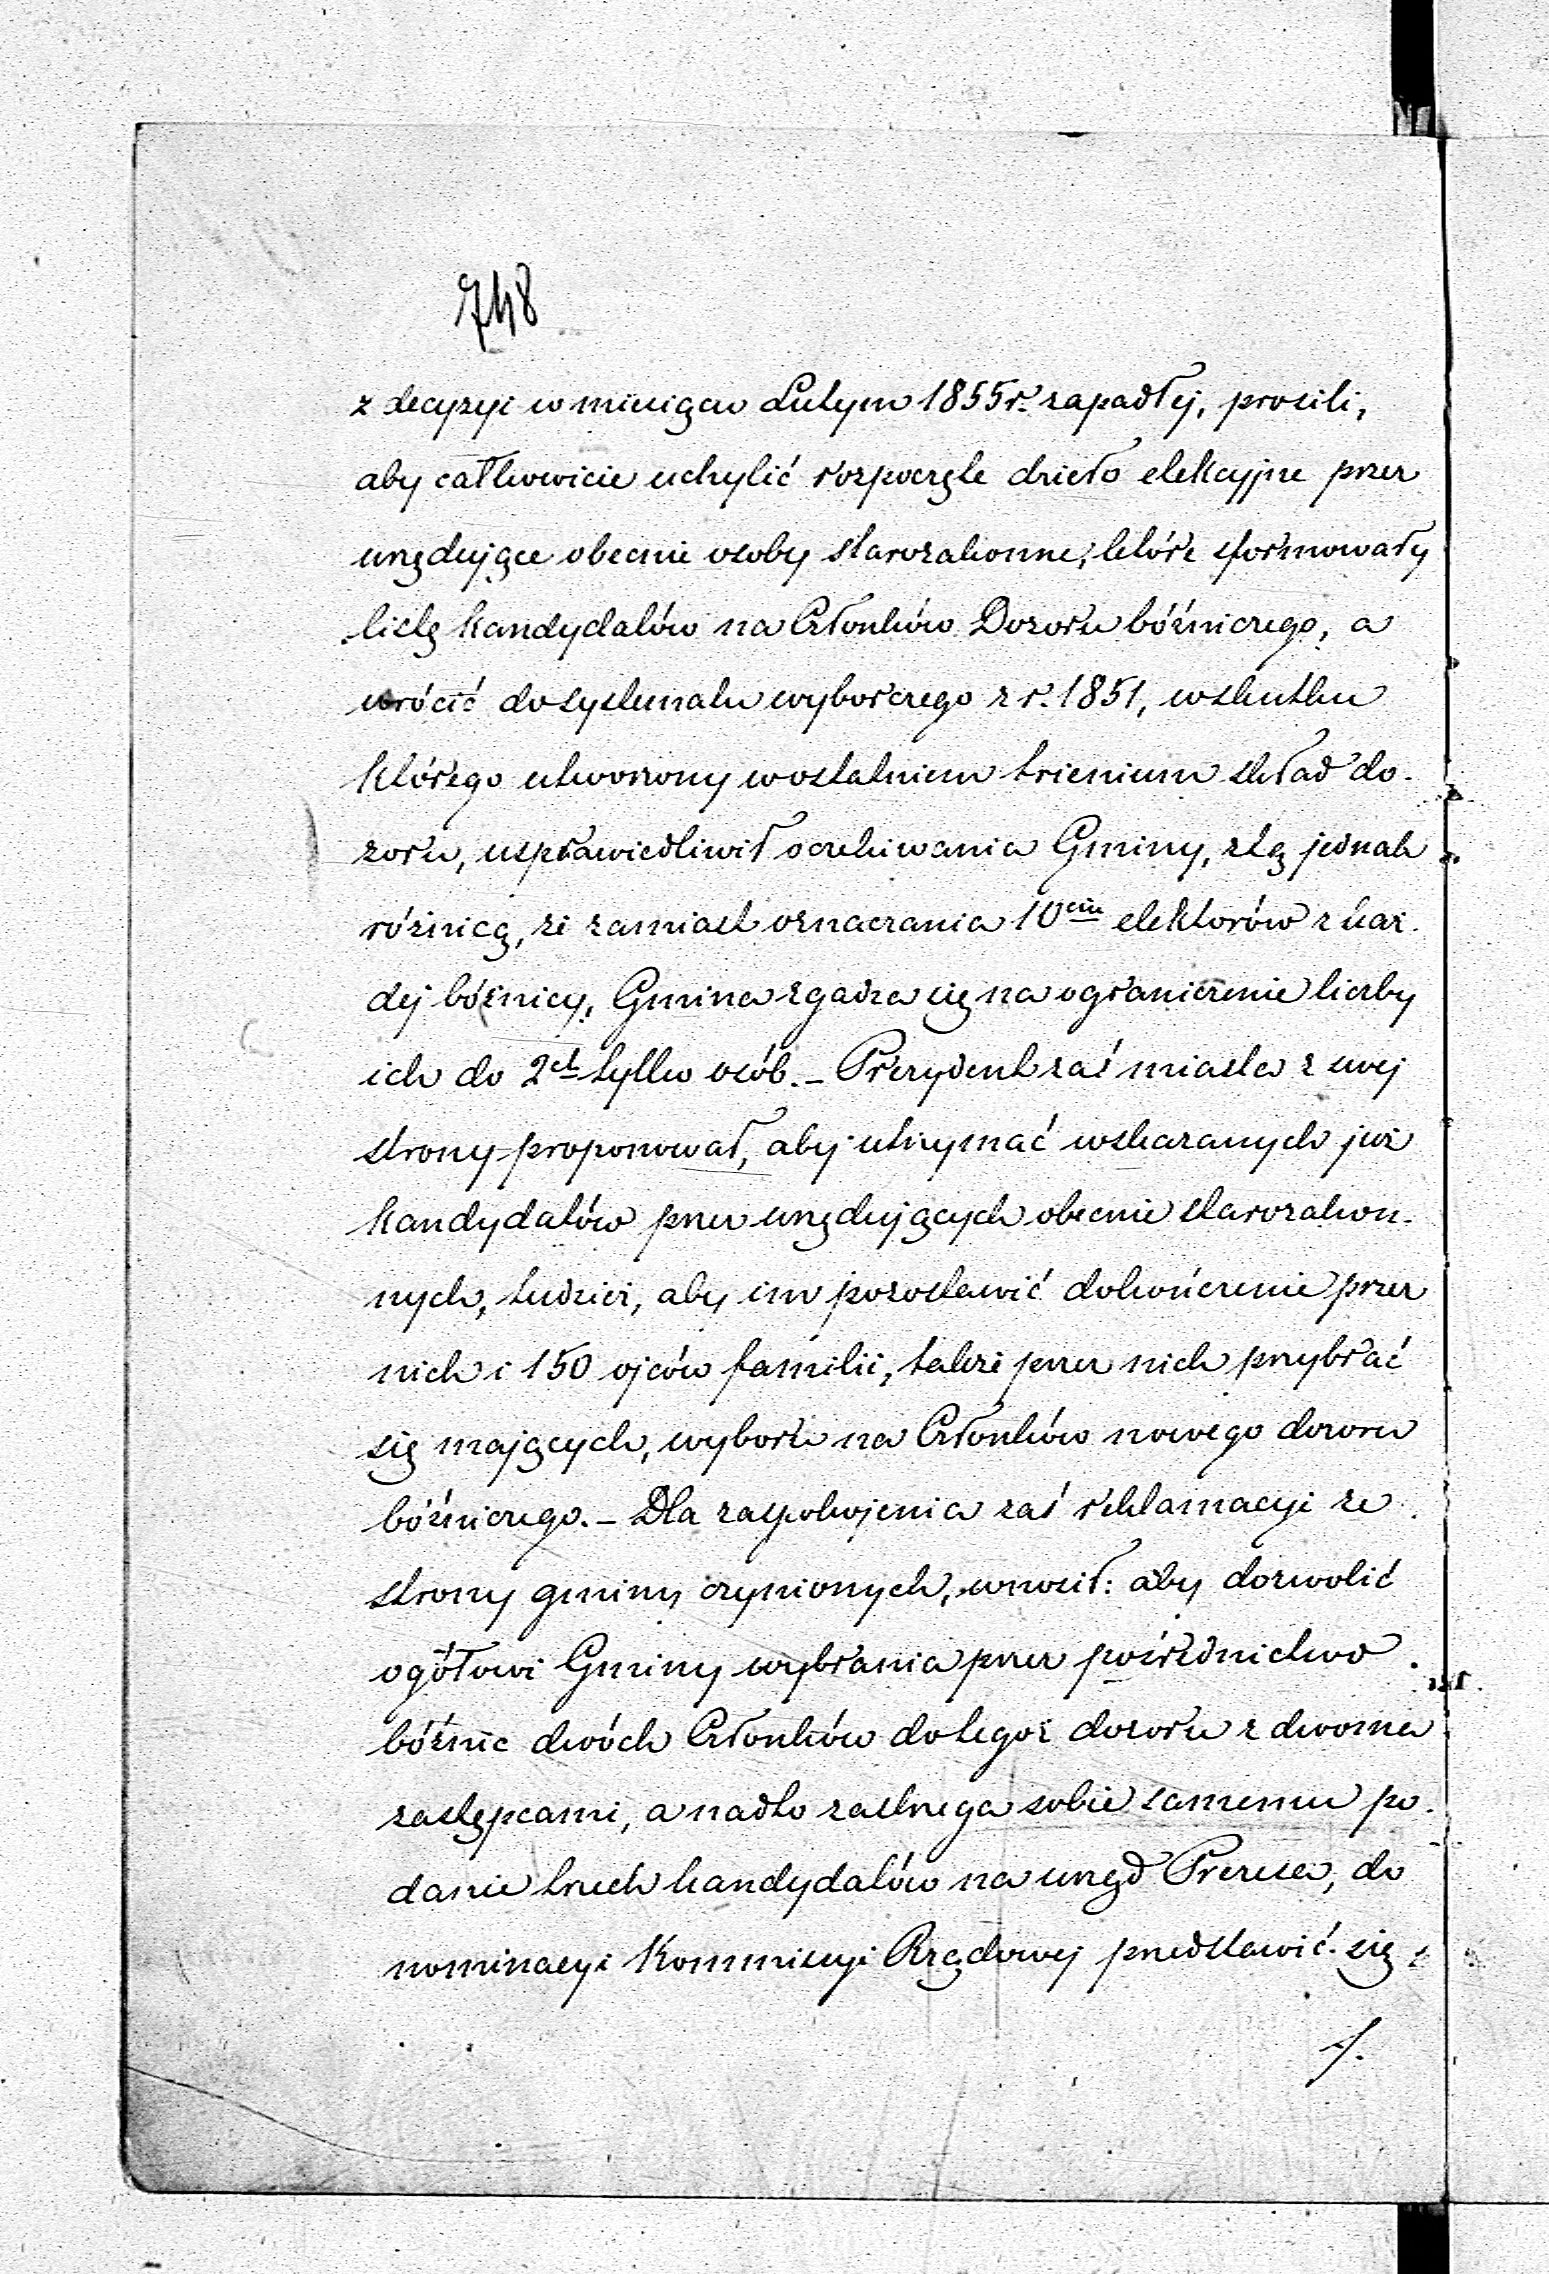 748
z decyzyi w miesiącu Lutym 1855 r. zapadłej, prosili,
aby całkowicie uchylić rozpoczęte dzieło elekcyjne przez
urzędujące obecnie osoby starozakonne, które sformowały
listę kandydatów na Członków Dozoru bóźniczego, a
wrócić do systematu wyborczego z r. 1851, w skutku
którego utworzony w ostatniem trienium skład do-
zoru, usprawiedliwił oczekiwania Gminy, z tą jednak
różnicą, że zamiast oznaczania 10ciu elektorów z każ-
dej bóźnicy, Gmina zgadza się na ograniczenie liczby
ich do 2ch tylko osób. – Prezydent zaś miasta z swej
strony proponował, aby utrzymać wskazanych już
kandydatów przez urzędujących obecnie starozakon-
nych, tudzież, aby im pozostawić dokończenie przez
nich i 150 ojców familii, także przez nich przybrać
się mających, wyboru na Członków nowego dozoru
bóźniczego. – Dla zaspokojenia zaś reklamacyi ze
strony gminy czynionych, wnosił: aby dozwolić
ogółowi Gminy wybrania przez pośrednictwo
bóźnic dwóch Członków do tegoż dozoru z dwoma
zastępcami, a nadto zastrzega sobie samemu po-
danie trzech kandydatów na urząd Prezesa, do
nominacyi Kommissyi Rządowej przedstawić się